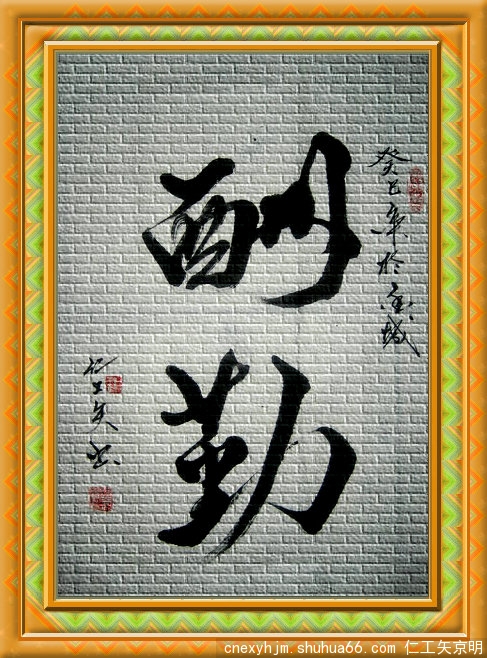 癸巳年於城
酬勤
仁工矢
cnexyhjm.shuhua66.com 仁工矢京明